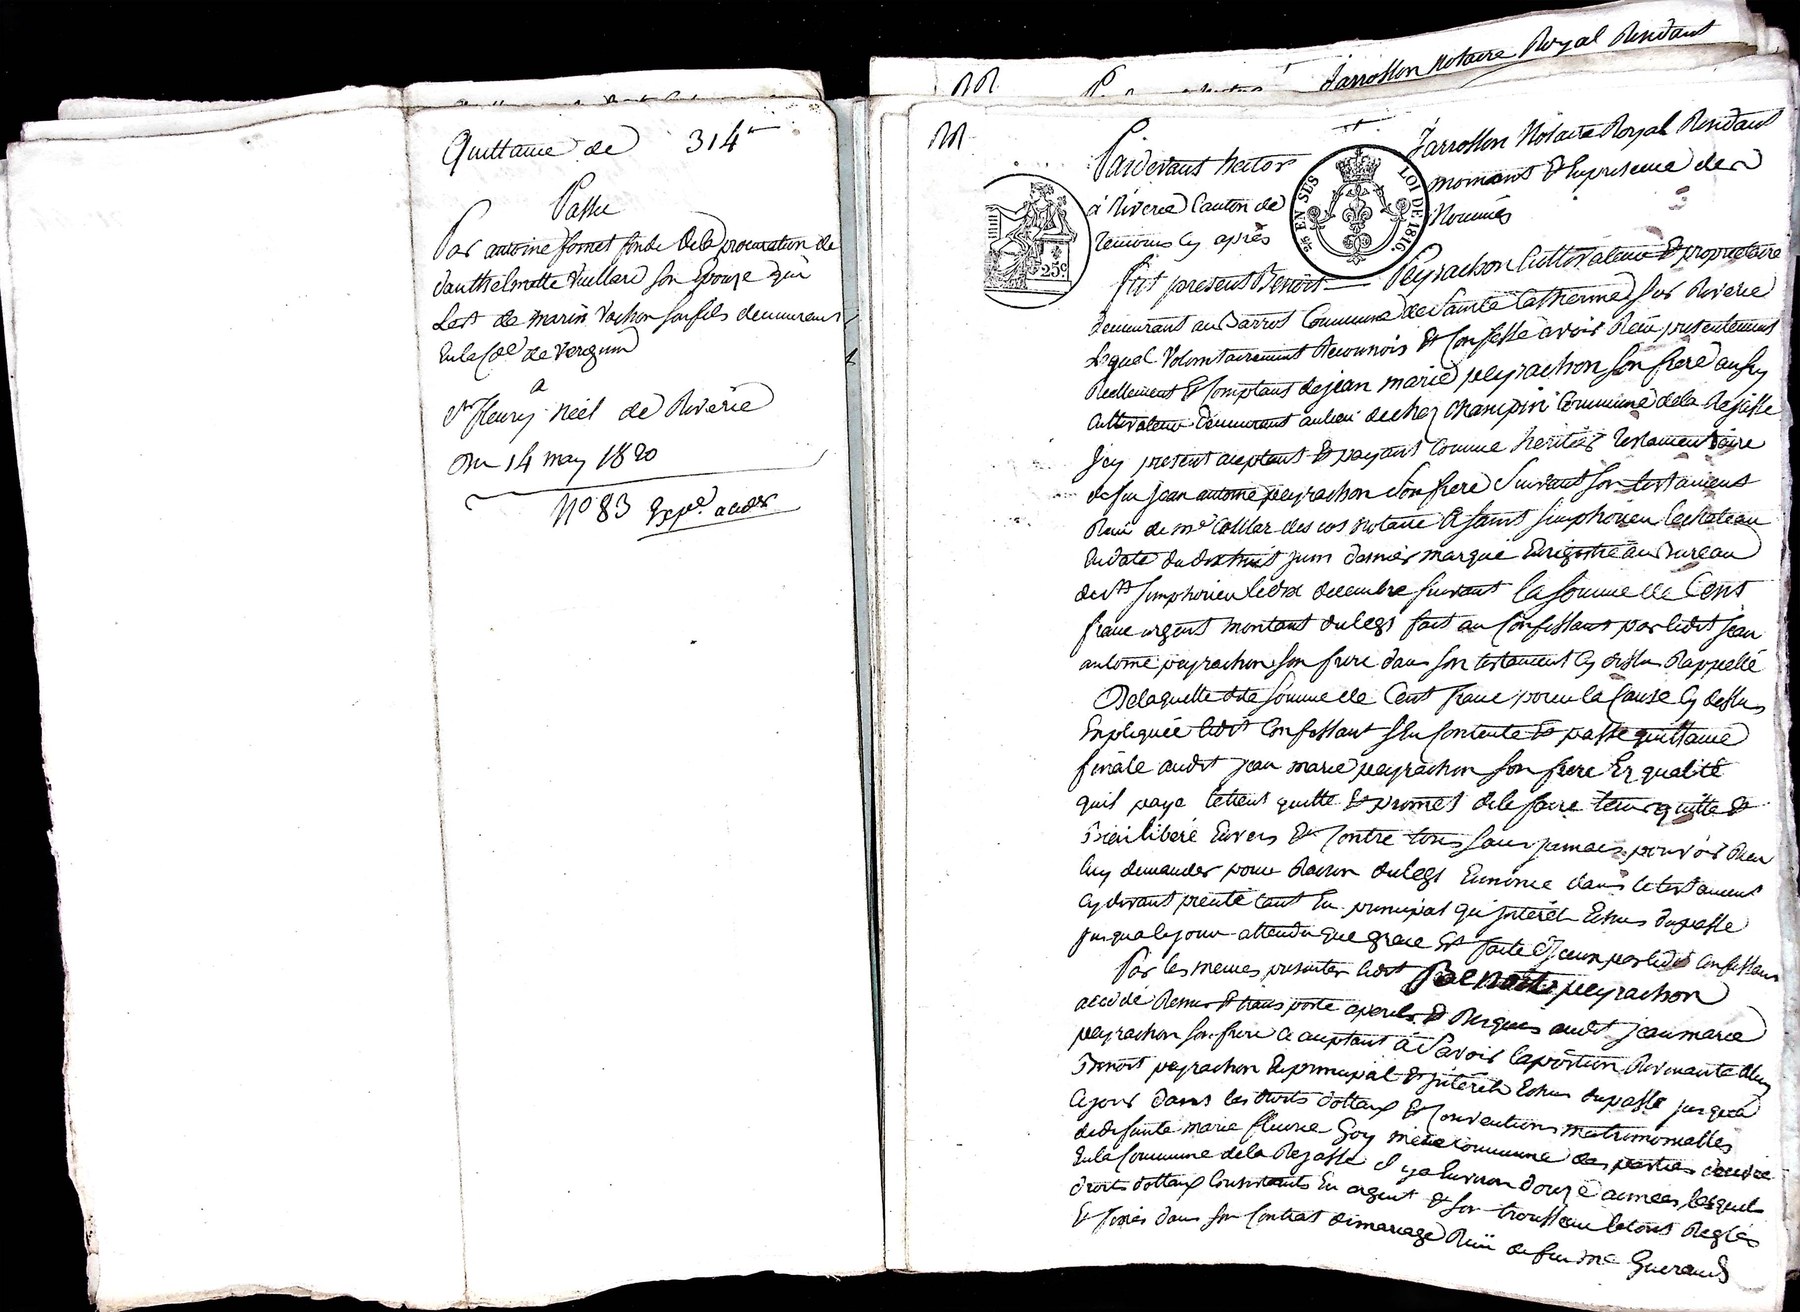 Quittance de 314
Passée
Par antoine fornet fondé de la procuration de
d'anthelmette vuillard son Epouze qui
de marin vachon son fils demeurant
En la de
a
Sr fleury neel de Riverie
Du 14 may 1820
No 83 Expe.
Jarrosson Notaire Royal Residant
Pardevant hector Jarrosson Notaire Royal Residant
à Riverie Canton de mornant & En presence des
temoins Cy après Nommés
25c
EN SUS LOI DE 1816
fut present Benoit Peyrachon Cultivateur & proprietaire
demeurant au Barrot Commune de Sainte Catherine Sur Riverie
Lequel Volontairement Reconnois & Confesse avoir Reçu presentement
Réellement & Comptant de jean marie peyrachon son frere aussy
Cultivateur demeurant au lieu de chez Champin Commune de la Rajasse
Icy present acceptant & payant Comme heritier testamentaire
de feu jean antoine peyrachon son frere Suivant son testament
Reçu de me notaire a Saint Simphorien le chateau
En date du dix huit juin dernier marqué Enregistré au Bureau
de St Simphorien le dix decembre suivant la somme de Cent
franc argent montant du legs fait au Confessant par ledit jean
antoine peyrachon son frere dans son testament Cy dessus Rappellé
De laquelle dite Somme de Cent franc pour la Cause Cy dessus
Expliquée ledit Confessant s'en Contente & passe quittance
finale audit jean marie peyrachon son frere En qualité
quil paye letient quitte & promet de le faire tenir quitte &
Bien libéré Envers & Contre tous sans jamais pouvoir Rien
luy demander pour Raison du legs Enoncé dans le testament
Cy devant tant En principal qu'interêt Echus du passé
jusqua Cejour attendu que grace Est faite d'Iceux par ledit Confessant
Par les memes presentes ledit Benoit peyrachon
a cedé Remis & transporté audit jean marie
peyrachon son frere acceptant à Savoir la portion Revenante aluy
Benoit peyrachon En principal & Interêt Echus du passé jusqu'a
Cejour dans les droits dottaux & Conventions matrimonialles
de defunte marie fleurie Goy mere Commune des parties decedée
En la Commune de la Rajasse Il y a Environ douze années lesquels
droits dottaux Consistants En argent & son trousseau le tout Reglés
& fixés dans son Contrat de mariage Reçu de feu me Gueraud